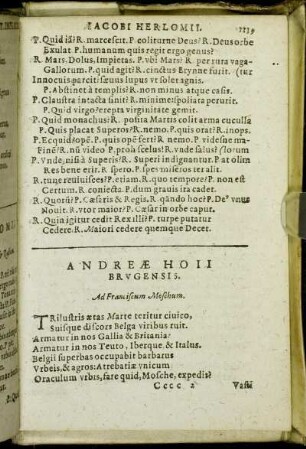 IACOBI HERLOMII.
P. Quid is? R. marcescit. P. coliturne Deus? R. Deus orbe
Exulat P. humanum quis regit ergo genus?
R. Mars. Dolus, impietas. P. vbi Mars? R. per rura vaga-
Gallorum. P. quid agit? R. cinctus Erynne furit. (tur
Innocuis parcit? sæuus lupus vt solet agnis.
P. Abstinet à templis? R. non minus atque casis.
P. Claustra intacta sinit? R. minime: spoliata perurit.
P. Quid virgo? erepta virginitate gemit.
P. Quid monachus? R. postra Martis colit arma cuculla
P. Quis placat Superos? R. nemo. P. quis orat? R. inops.
P. Ecquid opē P. quis opē fert? R. nemo P. videsne ma-
P. Vnde, nisi à Superis? R. Superi indignantur. P. at olim
Res bene erit. R. spero. P. spes miseros ter alit.
R. tunc reuiuisces? P. etiam. R. quo tempore? P. non est
Certum. R. coniecta. P. dum grauis ira cadet.
R. Quotū? P. Cæsaris & Regis. R. qñdo hoc? P. Deus vnus
Nouit. R. vtor maior? P. Cæsar in orbe caput.
R. Quin igitur cedit Rex illi? P. turpe putatur
Cedere. R. Maiori cedere quemque Decet.
ANDREÆ HOII
BRVGENSIS.
Ad Franciscum Moschum.
TRilustris ætas Marte teritur ciuico,
Suisque discors Belga viribus ruit.
Armatur in nos Gallia & Britania?
Armatur in nos Teuto, Iberque, & Italus.
Belgii superbas occupabit barbarus
Vrbeis, & agros: Atrebatiæ vnicum
Oraculum vrbis, fare quid, Mosche, expedis?
Cccc 2 Vasti